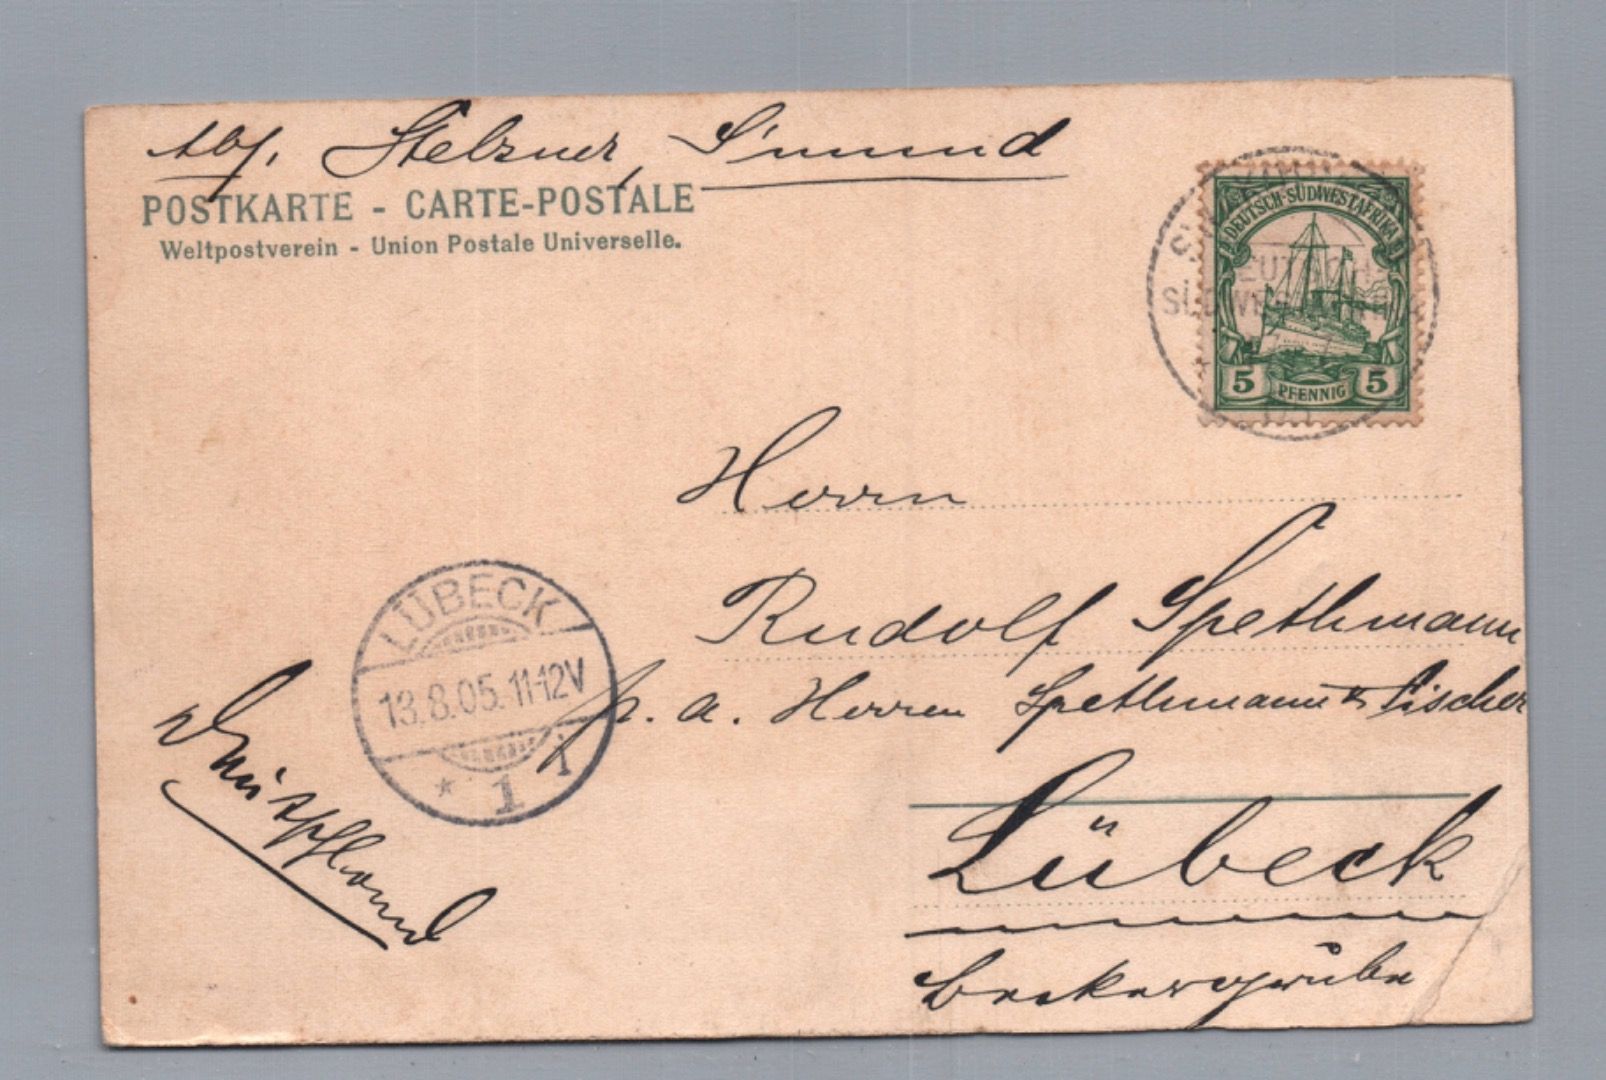 Abs. Stelzner, S'mund
POSTKARTE - CARTE-POSTALE
Weltpostverein - Union Postale Universelle.
DEUTSCH-SÜDWESTAFRIKA
5 PFENNIG 5
DEUTSCH-
SÜDWESTAFRIKA
Herrn
Rudolf Spethmann
p. a. Herren Spethmann & Fischer
LÜBECK
13.8.05.11-12V
* 1 i
Deutschland
Lübeck
Beckergrube